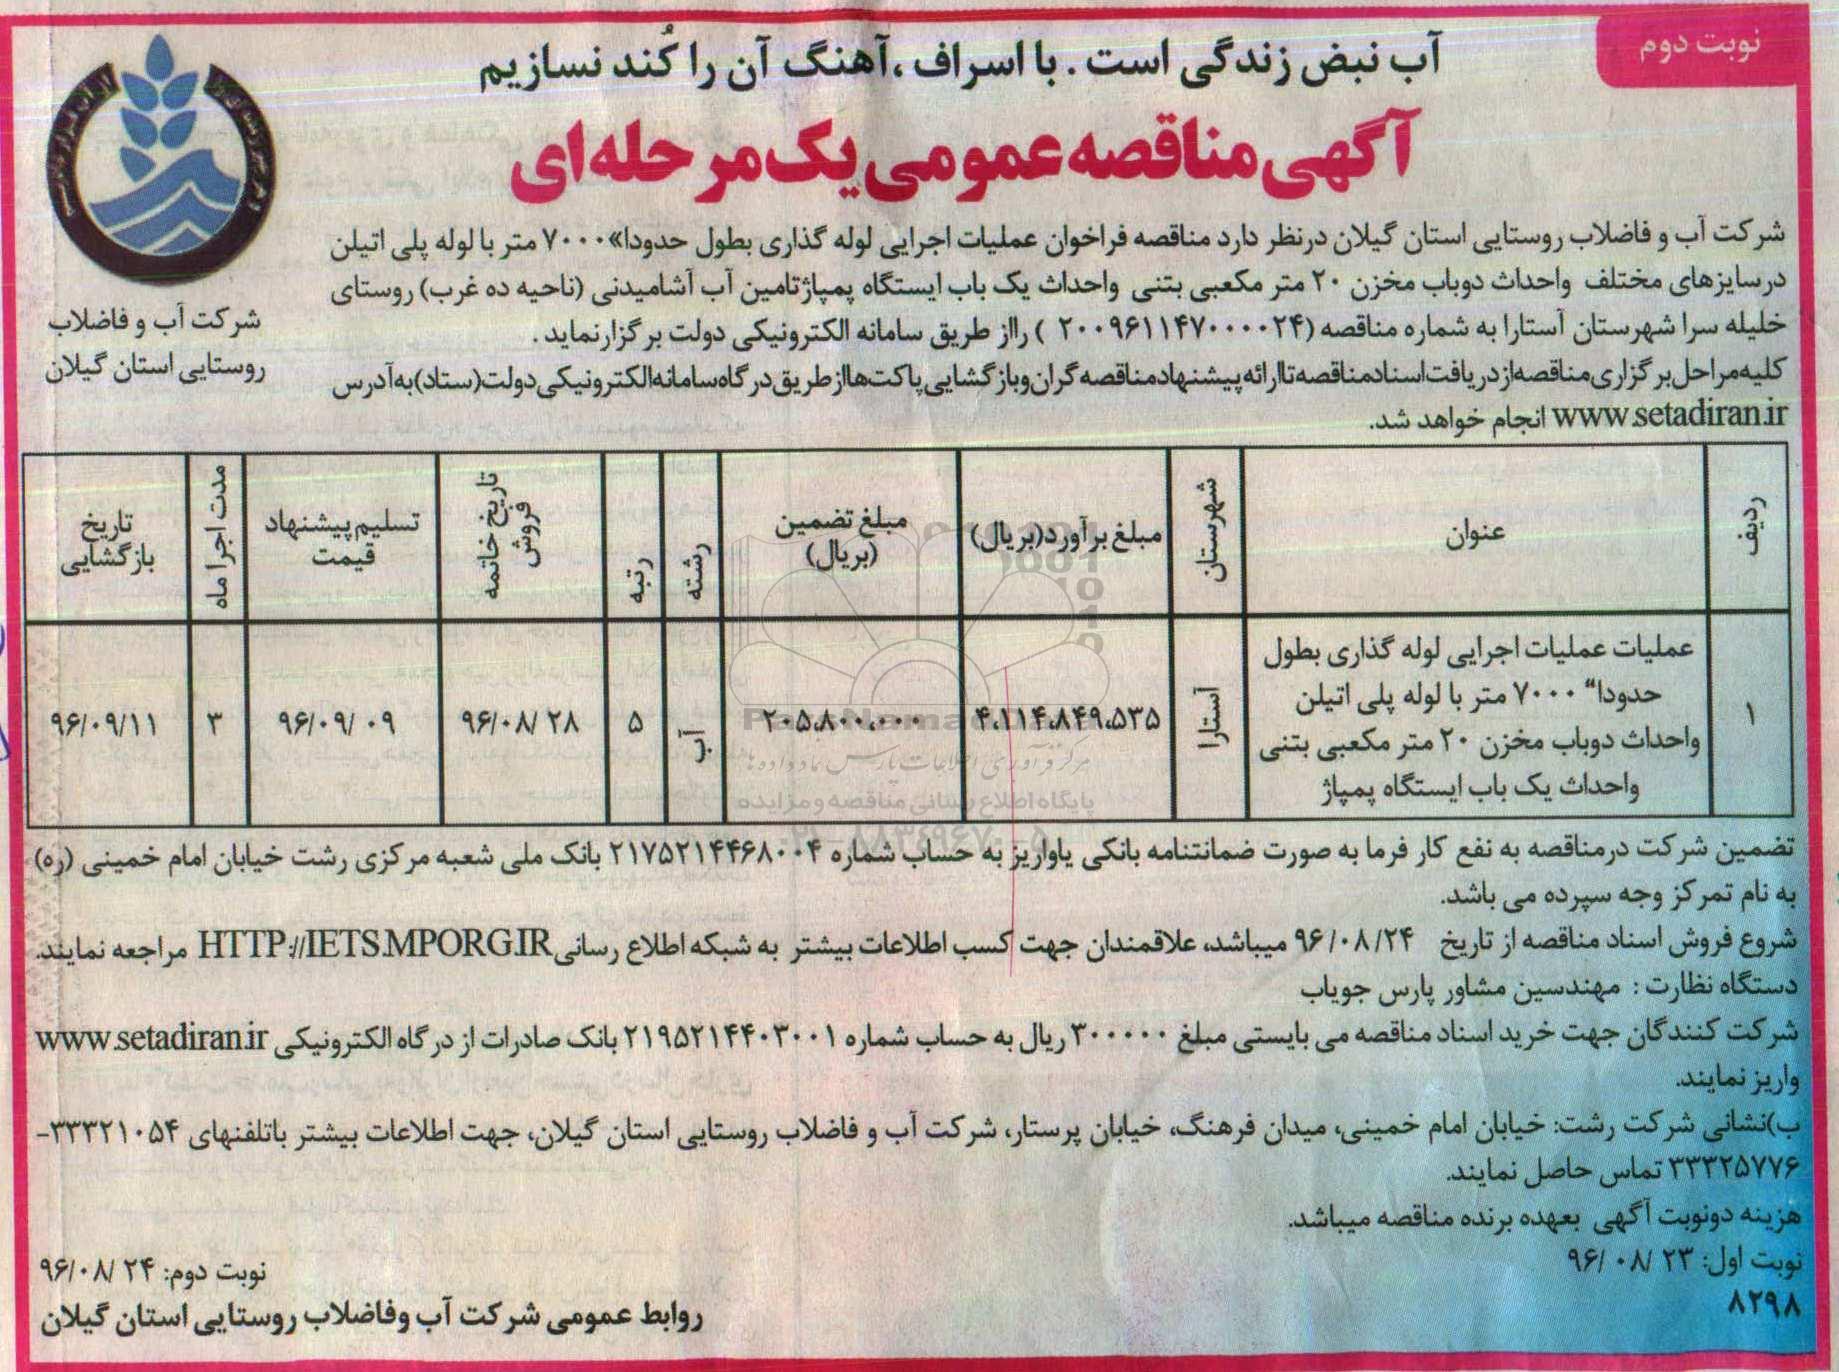 نوبت دوم
آب نبض زندگی است . با اسراف ،آهنگ آن را کُند نسازیم
آگهی مناقصه عمومی یک مرحله ای
شرکت آب و فاضلاب
روستایی استان گیلان
شرکت آب و فاضلاب روستایی استان گیلان درنظر دارد مناقصه فراخوان عملیات اجرایی لوله گذاری بطول حدودا» ۷۰۰۰ متر با لوله پلی اتیلن
درسایزهای مختلف واحداث دوباب مخزن ۲۰ متر مکعبی بتنی واحداث یک باب ایستگاه پمپاژتامین آب آشامیدنی (ناحیه ده غرب) روستای
خلیله سرا شهرستان آستارا به شماره مناقصه (۲۰۰۹۶۱۱۴۷۰۰۰۰۲۴ ) رااز طریق سامانه الکترونیکی دولت برگزارنماید .
کلیه مراحل برگزاری مناقصه از دریافت اسناد مناقصه تا ارائه پیشنهاد مناقصه گران و بازگشایی پاکت ها از طریق درگاه سامانه الکترونیکی دولت (ستاد) به آدرس
www.setadiran.ir انجام خواهد شد.
ردیف
عنوان
شهرستان
مبلغ برآورد(بریال)
مبلغ تضمین
(بریال)
رشته
رتبه
تاریخ خاتمه
فروش
تسلیم پیشنهاد
قیمت
مدت اجرا ماه
تاریخ
بازگشایی
۱
عملیات عملیات اجرایی لوله گذاری بطول
حدودا“ ۷۰۰۰ متر با لوله پلی اتیلن
واحداث دوباب مخزن ۲۰ متر مکعبی بتنی
واحداث یک باب ایستگاه پمپاژ
آستارا
۴،۱۱۴،۸۴۹،۵۳۵
۲۰۵،۸۰۰،۰۰۰
آب
۵
۹۶/۰۸/ ۲۸
۹۶/۰۹/ ۰۹
۳
۹۶/۰۹/۱۱
مرکز فرآوری اطلاعات پارس نماد داده ها
پایگاه اطلاع رسانی مناقصه و مزایده
تضمین شرکت درمناقصه به نفع کار فرما به صورت ضمانتنامه بانکی یاواریز به حساب شماره ۲۱۷۵۲۱۴۴۶۸۰۰۴ بانک ملی شعبه مرکزی رشت خیابان امام خمینی (ره)
به نام تمرکز وجه سپرده می باشد.
شروع فروش اسناد مناقصه از تاریخ ۹۶/۰۸/۲۴ میباشد، علاقمندان جهت کسب اطلاعات بیشتر به شبکه اطلاع رسانی HTTP://IETS.MPORG.IR مراجعه نمایند.
دستگاه نظارت : مهندسین مشاور پارس جویاب
شرکت کنندگان جهت خرید اسناد مناقصه می بایستی مبلغ ۳۰۰۰۰۰ ریال به حساب شماره ۲۱۹۵۲۱۴۴۰۳۰۰۱ بانک صادرات از درگاه الکترونیکی www.setadiran.ir
واریز نمایند.
ب)نشانی شرکت رشت: خیابان امام خمینی، میدان فرهنگ، خیابان پرستار، شرکت آب و فاضلاب روستایی استان گیلان، جهت اطلاعات بیشتر باتلفنهای ۳۳۳۲۱۰۵۴-
۳۳۳۲۵۷۷۶ تماس حاصل نمایند.
هزینه دونوبت آگهی بعهده برنده مناقصه میباشد.
نوبت اول: ۲۳ /۰۸ /۹۶
نوبت دوم: ۲۴ /۹۶/۰۸
۸۲۹۸
روابط عمومی شرکت آب وفاضلاب روستایی استان گیلان